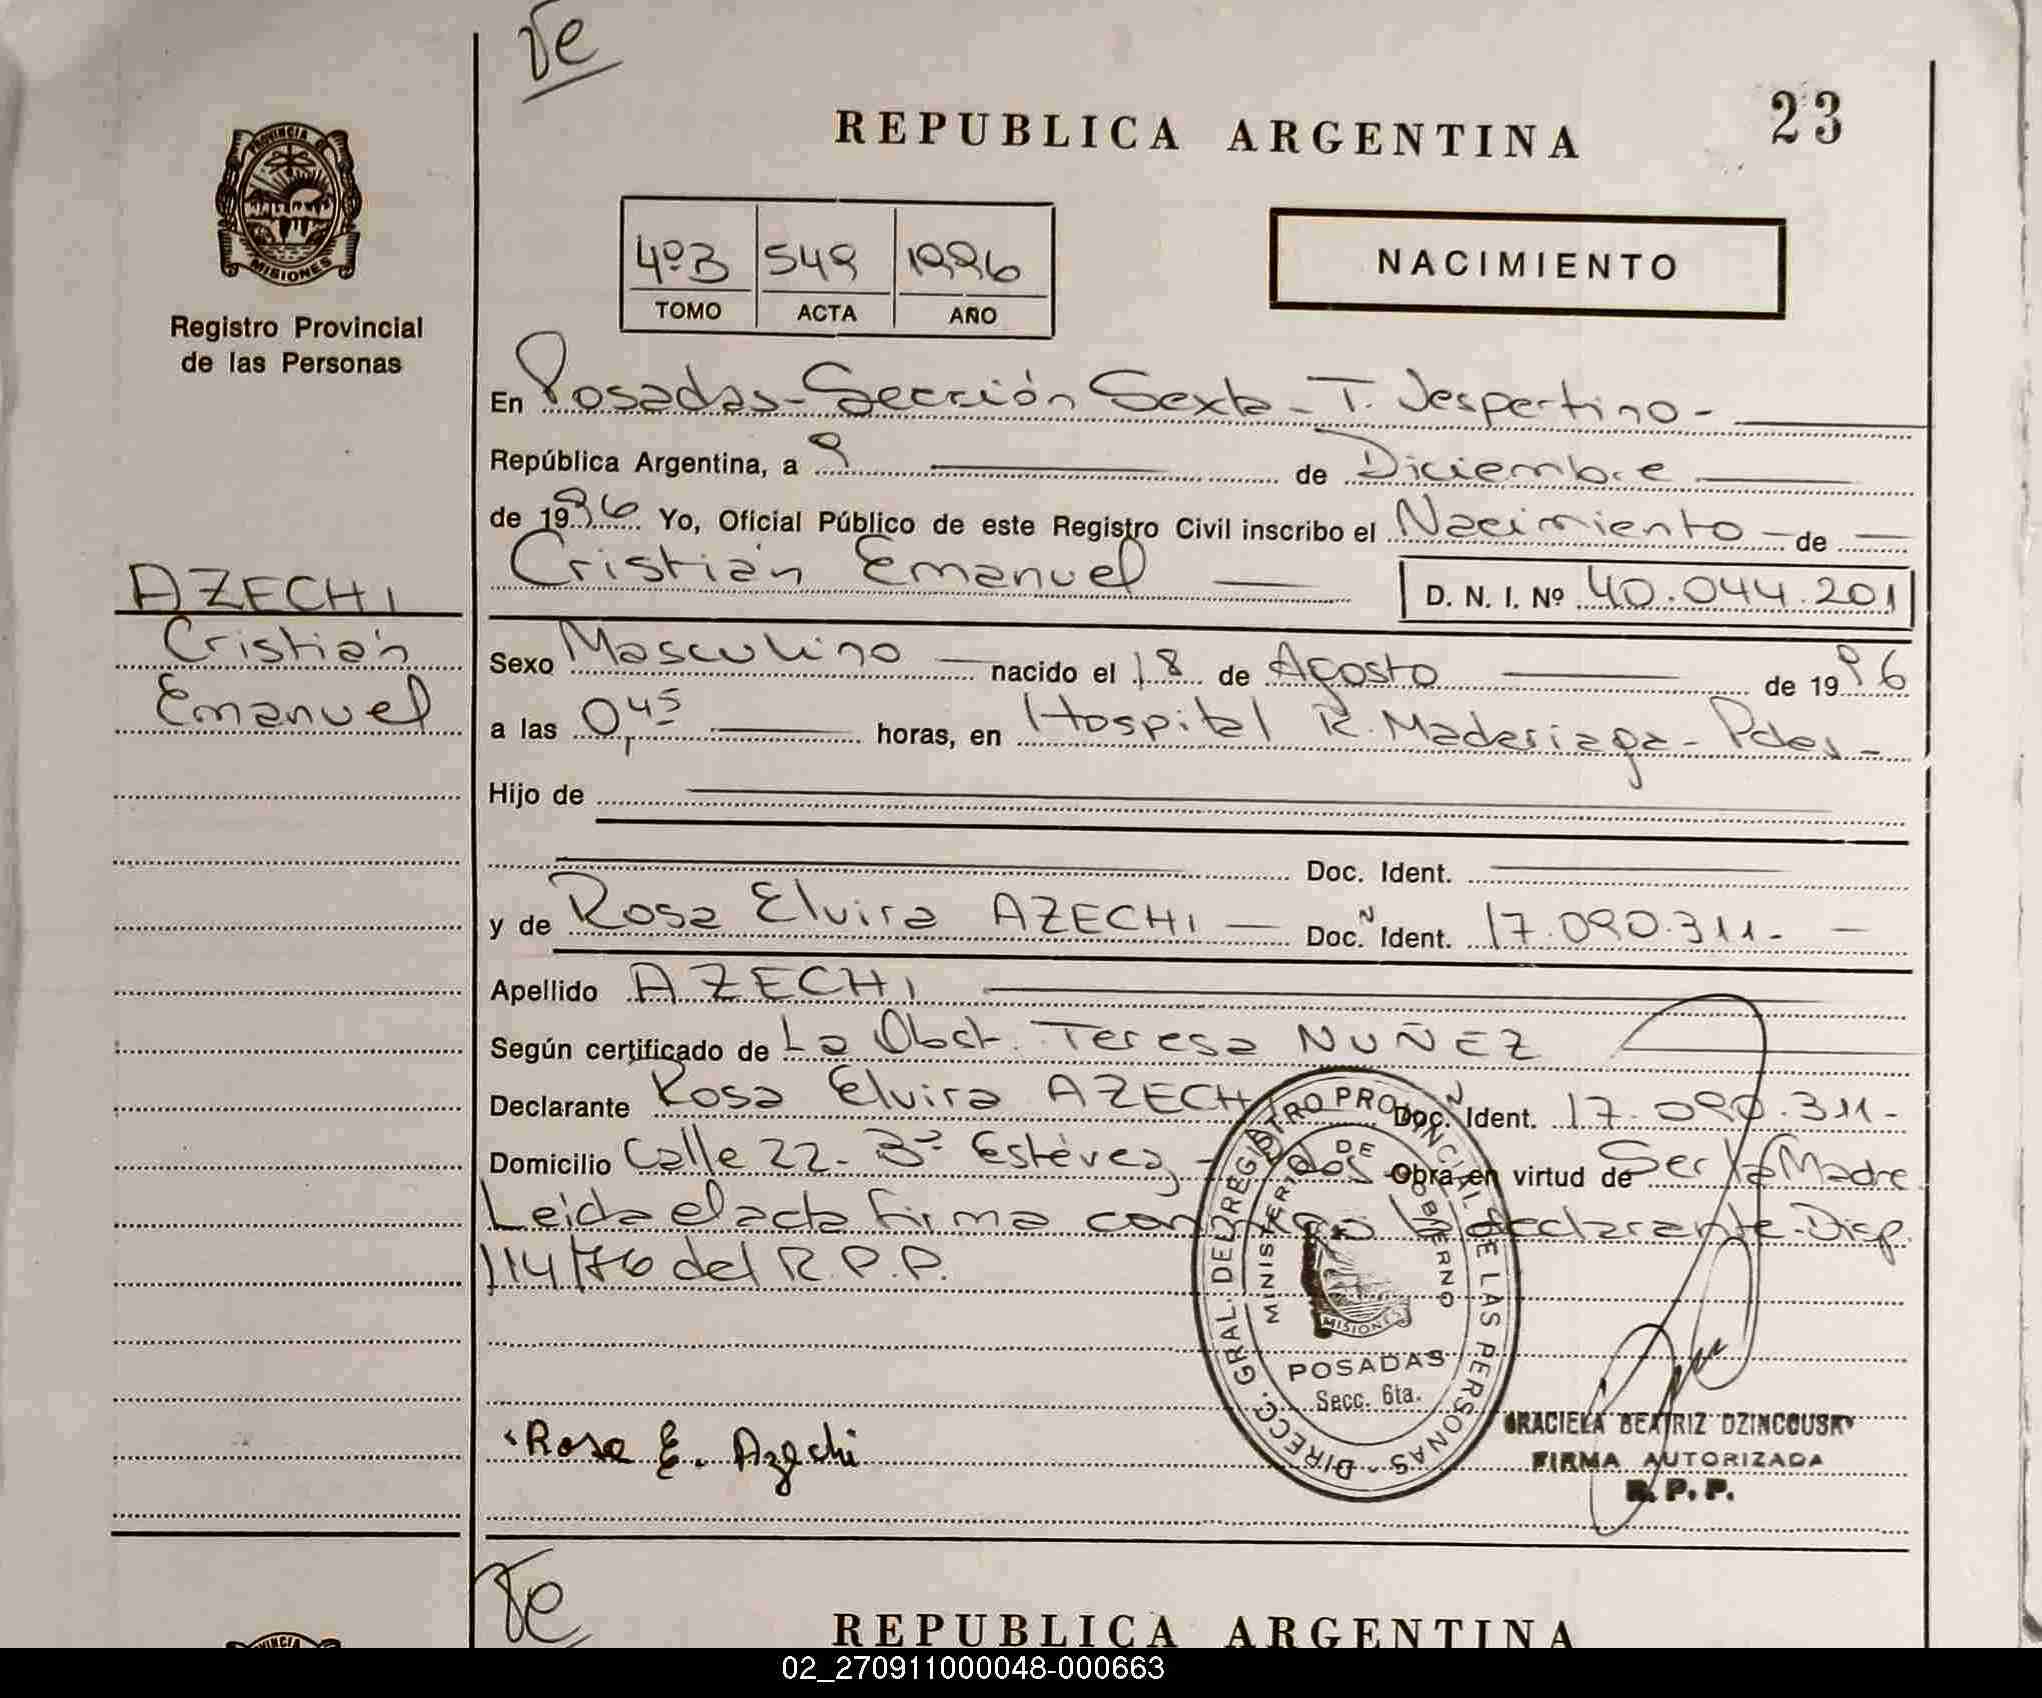 23
REPUBLICA ARGENTINA
PROVINCIA DE
MISIONES
Registro Provincial
de las Personas
4ºB 549 1996
TOMO ACTA AÑO
NACIMIENTO
En Posadas - Sección Sexta - T. Vespertino -
República Argentina, a 9 de Diciembre
de 1996 Yo, Oficial Público de este Registro Civil inscribo el Nacimiento - de
Cristián Emanuel D. N. I. Nº 40.044.201
AZECHI
Cristián
Emanuel
Sexo Masculino nacido el 18 de Agosto de 1996
a las 0,45 horas, en Hospital R. Madariaga - Pdas -
Hijo de
Doc. Ident.
y de Rosa Elvira AZECHI Doc. N Ident. 17.090.311.-
Apellido AZECHI
Según certificado de La Obst. Teresa NUÑEZ
Declarante Rosa Elvira AZECHI Doc. N Ident. 17.090.311-
Domicilio Calle 22 - Bº Estévez - Pdas Obra en virtud de Ser la Madre
Leida el acta firma conmigo la declarante - Disp.
114/76 del R.P.P.
DIRECC. GRAL. DEL REGISTRO PROVINCIAL DE LAS PERSONAS -
MINISTERIO DE GOBIERNO
MISIONES
POSADAS
Secc. 6ta.
Rosa E. Azechi
GRACIELA BEATRIZ DZINCOUSKY
FIRMA AUTORIZADA
R. P. P.
REPUBLICA ARGENTINA
02_270911000048-000663